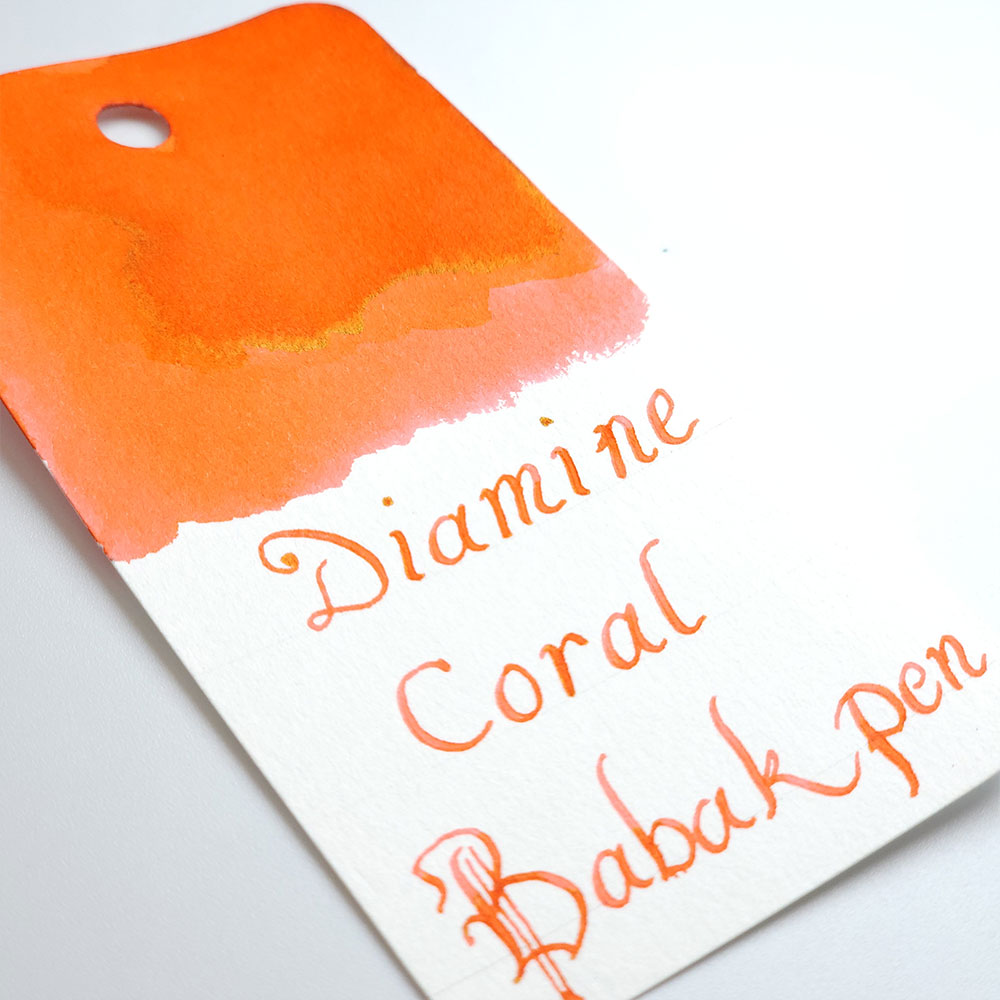 Diamine
Coral
Babak pen